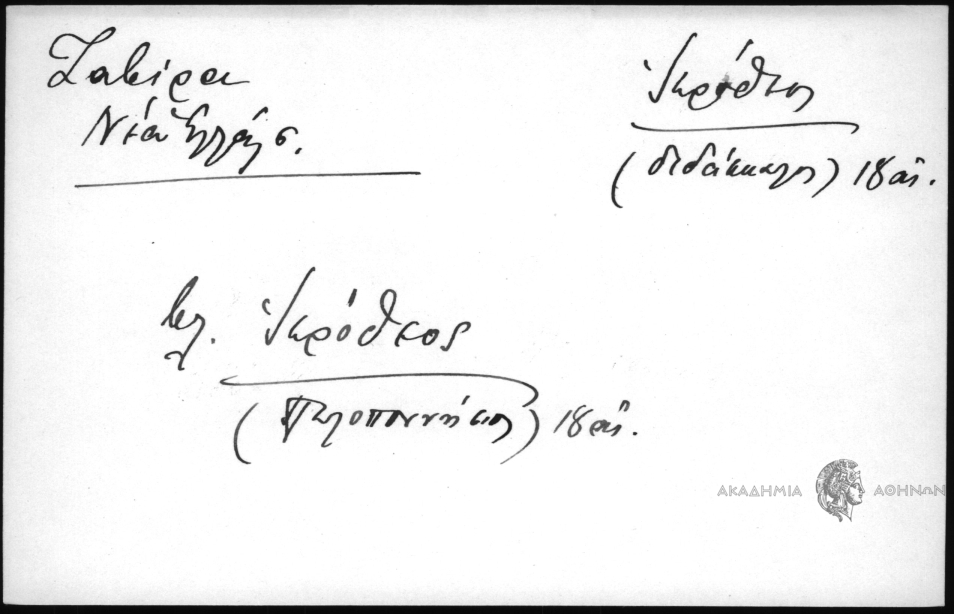 Ζαβίρα
Νέα Ἑλλάς.
Ἱερόθεος
(διδάσκαλος) 18 αἰ.
βλ. Ἱερόθεος
(Πελοποννήσιος) 18 αἰ.
ΑΚΑΔΗΜΙΑ ΑΘΗΝΩΝ